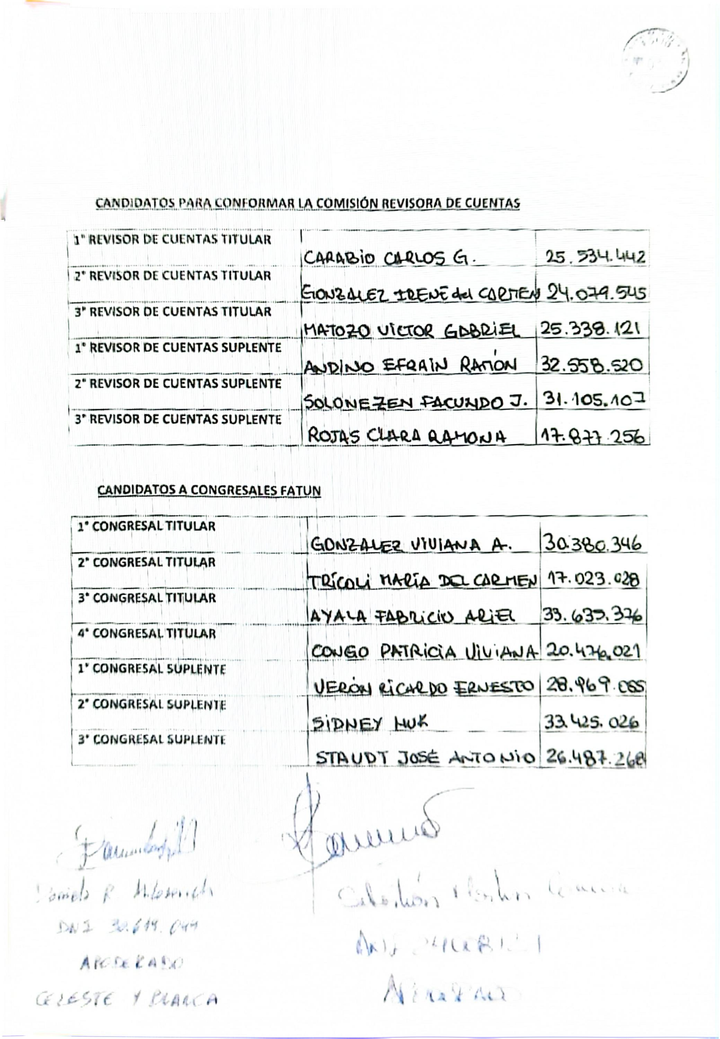 CANDIDATOS PARA CONFORMAR LA COMISIÓN REVISORA DE CUENTAS
1° REVISOR DE CUENTAS TITULAR CARABIO CARLOS G. 25.534.442
2° REVISOR DE CUENTAS TITULAR GONZALEZ IRENE del CARMEN 24.079.545
3° REVISOR DE CUENTAS TITULAR MATOZO VICTOR GABRIEL 25.338.121
1° REVISOR DE CUENTAS SUPLENTE ANDINO EFRAIN RAMÓN 32.558.520
2° REVISOR DE CUENTAS SUPLENTE SOLONEZEN FACUNDO J. 31.105.107
3° REVISOR DE CUENTAS SUPLENTE ROJAS CLARA RAMONA 17.877.256
CANDIDATOS A CONGRESALES FATUN
1° CONGRESAL TITULAR GONZALEZ VIVIANA A. 30.380.346
2° CONGRESAL TITULAR TRÍCOLI MARÍA DEL CARMEN 17.023.028
3° CONGRESAL TITULAR AYALA FABRICIO ARIEL 33.635.376
4° CONGRESAL TITULAR CONGO PATRICIA VIVIANA 20.476.021
1° CONGRESAL SUPLENTE VERÓN RICARDO ERNESTO 28.969.085
2° CONGRESAL SUPLENTE SIDNEY HUK 33.425.026
3° CONGRESAL SUPLENTE STAUDT JOSÉ ANTONIO 26.487.268
DNI 30.619.044
APODERADO
CELESTE Y BLANCA